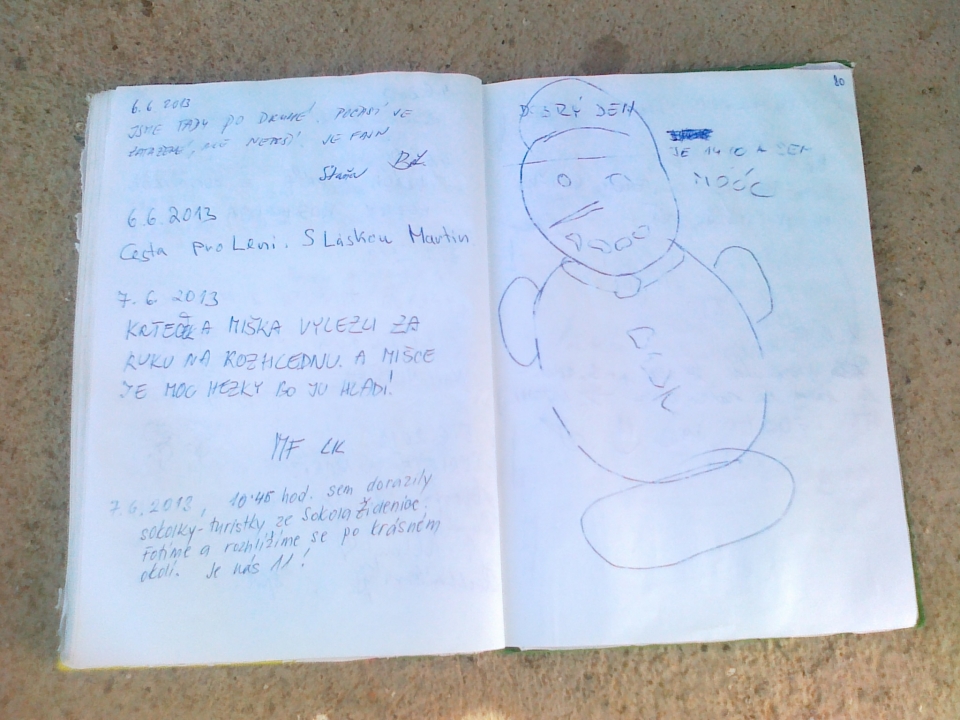 6.6 2013
JSME TADY PO DRUHÉ. POČASÍ JE
ZATAŽENÉ, ALE NEPRŠÍ. JE FAJN
6.6.2013
Cesta pro Leni. S Láskou Martin
7.6 2013
KRTEČEK A MIŠKA VYLEZLI ZA
RUKU NA ROZHLEDNU. A MIŠCE
JE MOC HEZKY BO JU HLADÍ!
MF LK
7.6.2013, 10:45 hod. sem dorazily
sokolky-turistky ze Sokola Židenice.
Fotíme a rozhlížíme se po krásném
okolí. Je nás 11!
80
DOBRÝ DEN
JE 14 10 A SEM